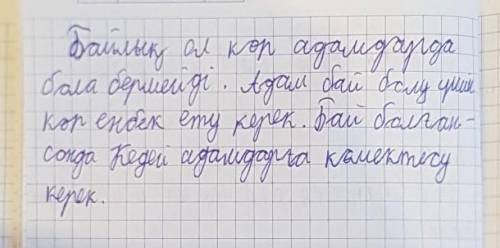 Байлық ол көп адамдарда
бола бермейді. Адам бай болу үшін
көп еңбек ету керек. Бай болған-
сонда кедей адамдарға көмектесу
керек.